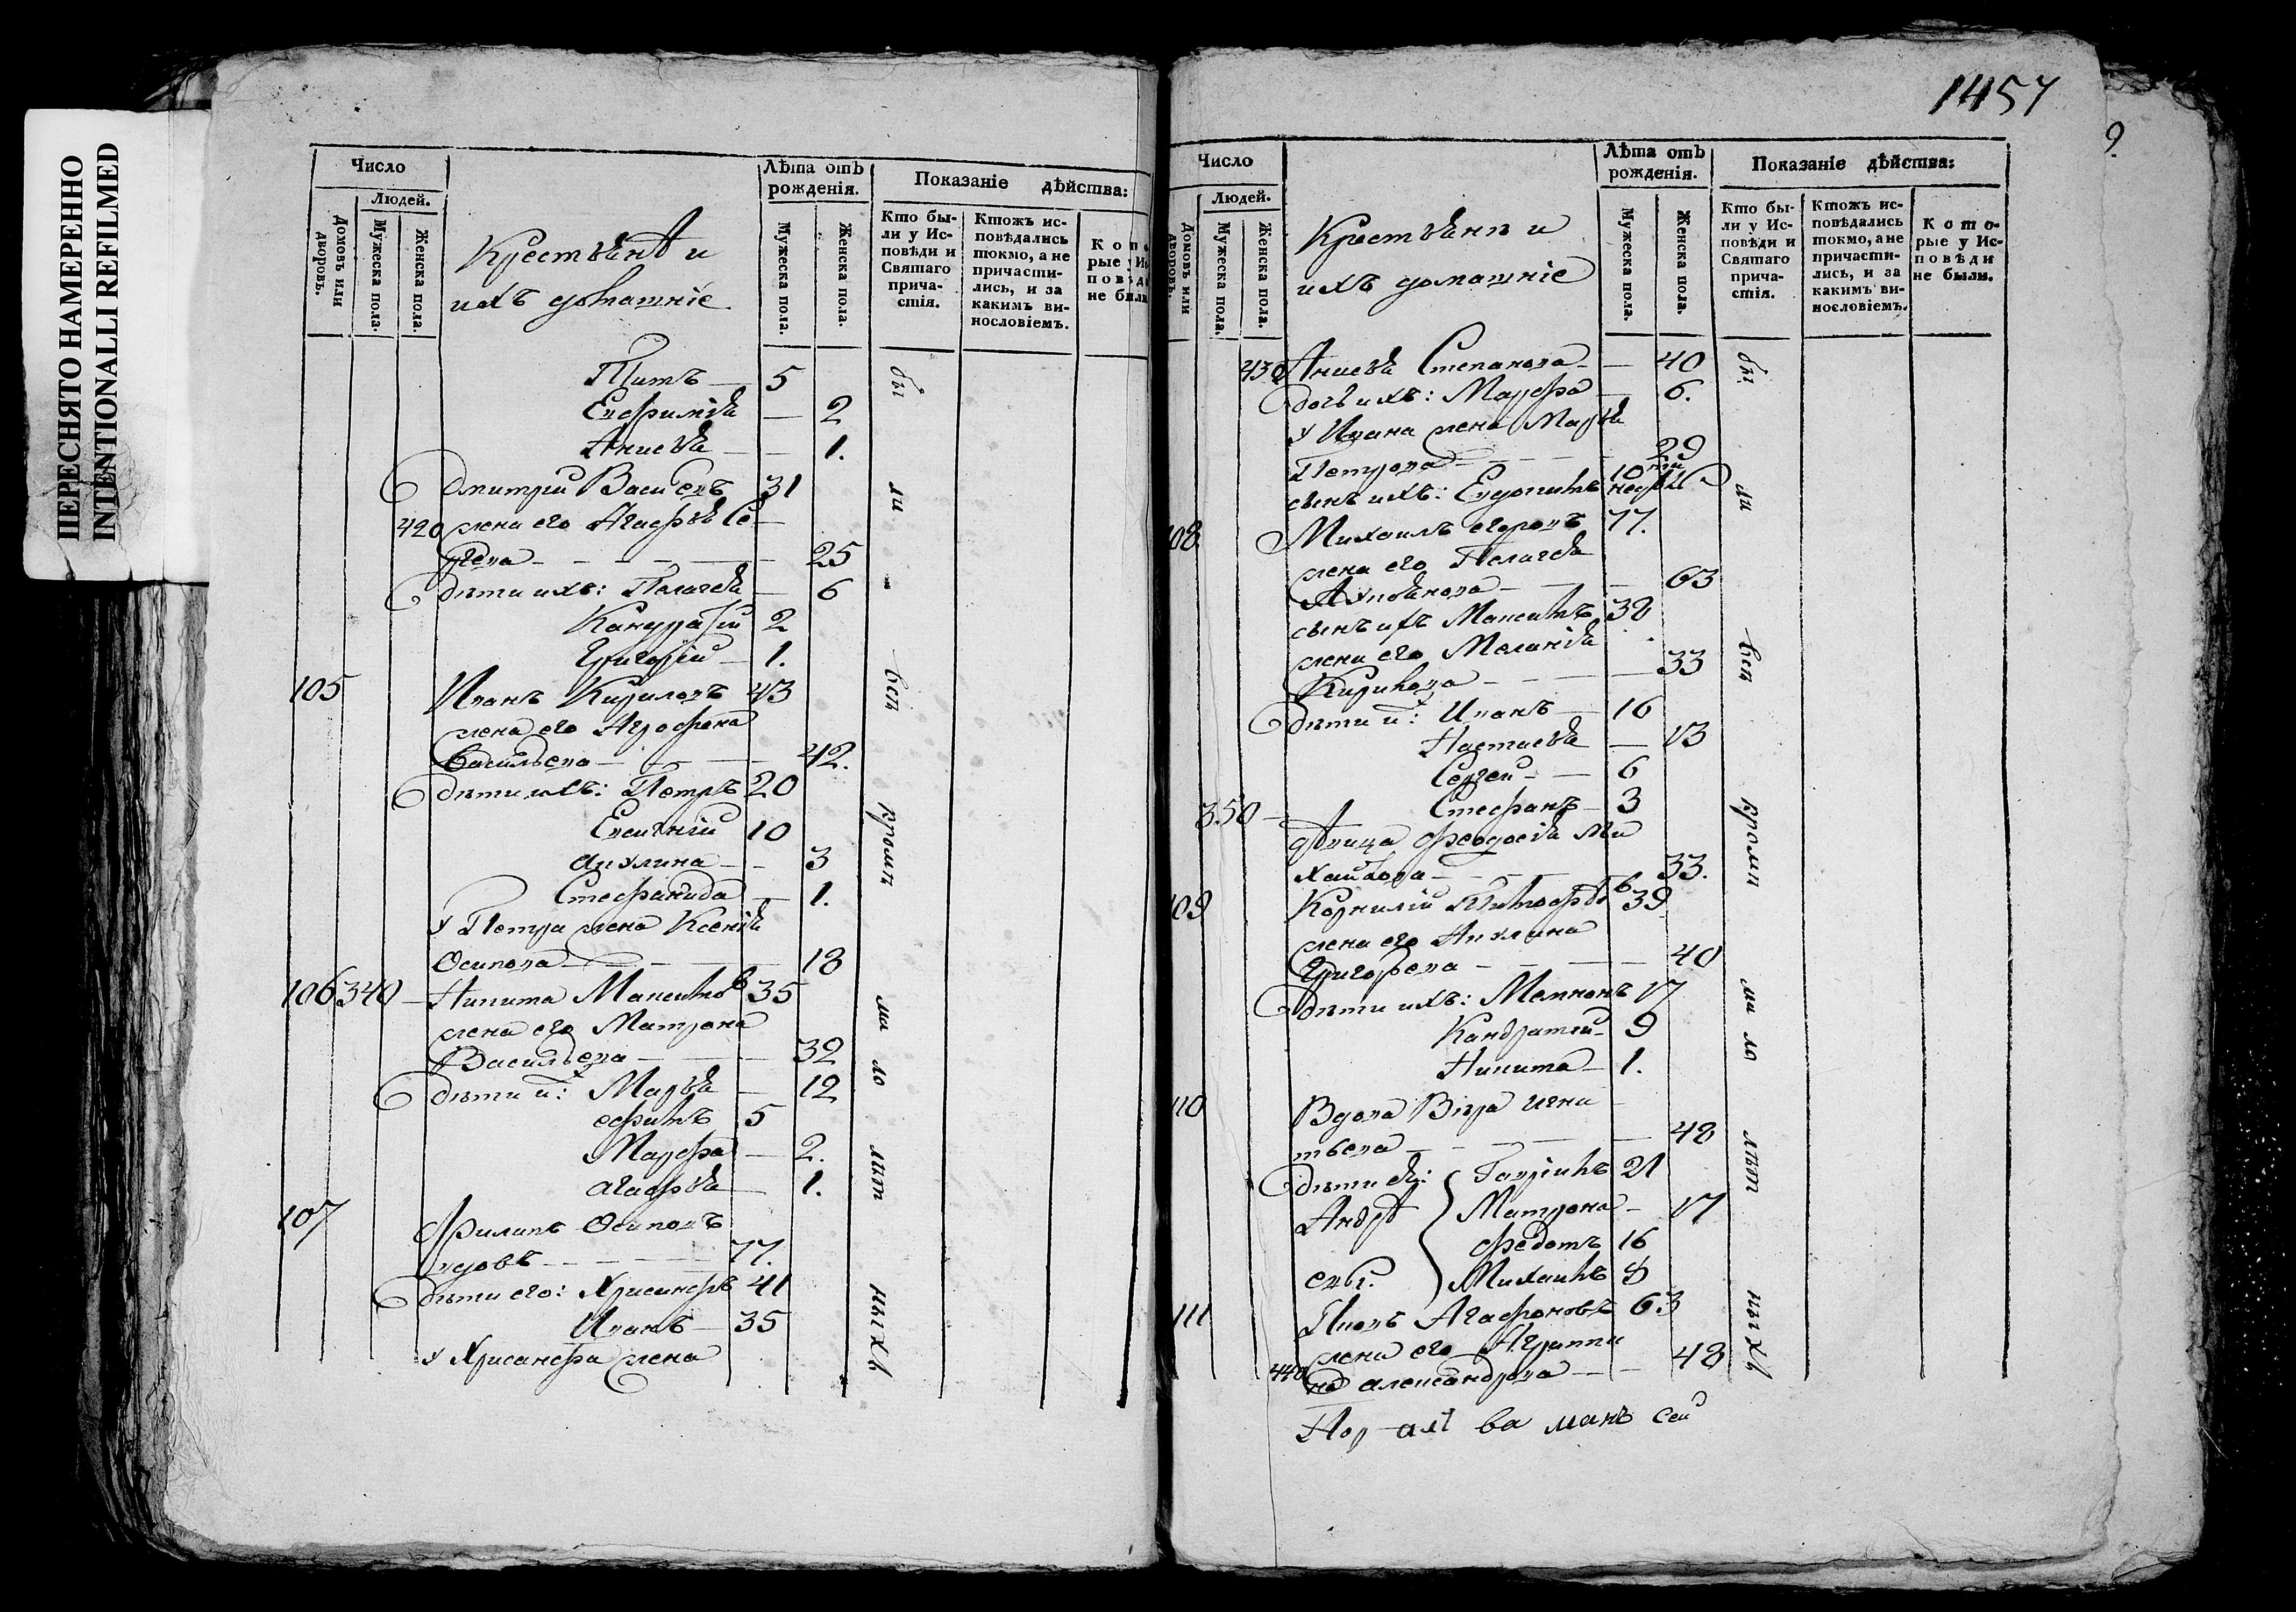 ПЕРЕСНЯТО НАМЕРЕННО
INTENTIONALLI REFILMED
Число
Людей.
Домовъ или дворовъ.
Мужеска пола.
Женска пола.
Крестьяне и
ихъ домашніе
Лѣта отъ рожденія.
Мужеска пола.
Женска пола.
Показаніе дѣйства:
Кто бы-
ли у Ис-
повѣди и
Святаго
прича-
стія.
Ктожъ ис-
повѣдались
токмо, а не
причасти-
лись, и за
какимъ ви-
нословіемъ.
Кото
рые у Ис
повѣди
не были
Титъ 5
Евфимія — 2
Анисья — 1.
Дмитрій Васильевъ 31
420 жена его Агафья Се
ргева — 25
дѣти ихъ: Пелагея — 6
Кандратій 2
Григорій — 1.
105 Иванъ Кириловъ 43
жена его Агрофена
Васильева — 42.
дѣти ихъ: Петръ 20
Евсигній 10
Акулина — 3
Стефанида — 1.
у Петра жена Ксенія
Осипова — 18
106 340 — Никита Максимовъ 35
жена его Матрона
Васильева — 32
дѣти их: Марья — 12
ефимъ 5
Марфа — 2.
агафья — 1.
107 Филипъ Осиповъ
вдовъ — 77.
дѣти его: Хрисанфъ 41
Иванъ — 35
у Хрисанфа жена
бы
ли
всѣ
кромѣ
ма ло
лѣт
ныхъ
1457
Число
Людей.
Домовъ или дворовъ.
Мужеска пола.
Женска пола.
Крестьяне и
ихъ домашніе
Лѣта отъ рожденія.
Мужеска пола.
Женска пола.
Показаніе дѣйства:
Кто бы-
ли у Ис-
повѣди и
Святаго
прича-
стія.
Ктожъ ис-
повѣдались
токмо, а не
причасти-
лись, и за
какимъ ви-
нословіемъ.
Кото-
рые у Ис-
повѣди
не были.
430 Анисья Степанова — 40
дочь ихъ: Марфа — 6.
у Ивана жена Марья
Петрова — 29
сынъ ихъ: Евдокимъ 10ти недѣль
108. Михаилъ егоровъ 77.
жена его Пелагея
— 63
сынъ ихъ Максимъ 38
жена его Меланія
Кирилова — 33
дѣти их: Иванъ — 16
Настасья — 13
Сергей — 6
Стефанъ — 3
350 — дѣвица Феодосія Ми
хайлова — 33.
109 Корнилій Тимофеевъ 39
жена его Акулина
Григорьева — 40
дѣти ихъ: Мемнонъ 17
Кандратей — 9
Никита — 1.
110 Вдова Вѣра игна
тьева — 48
дѣти ея: Гаврилъ 21
Андре Матрона — 17
Федотъ 16
евы: Михаилъ 8
111 Пиовъ Агафоновъ 63
жена его Агриппи
440 на александрова — 48
бы
ли
всѣ
кромѣ
ма ло
лѣт
ныхъ